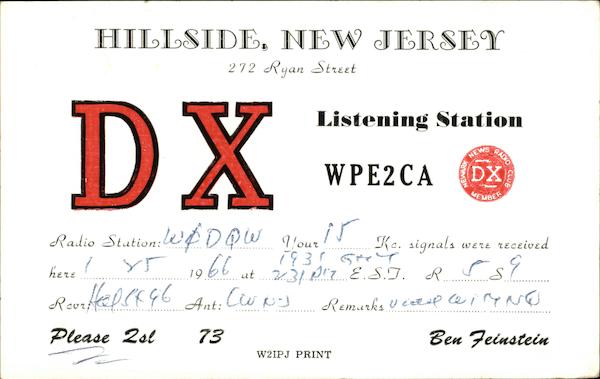 HILLSIDE, NEW JERSEY
272 Ryan Street
DX
Listening Station
WPE2CA
NEWARK NEWS RADIO CLUB
DX
MEMBER
Radio Station: WØDQW Your 15 Kc. signals were received
here 1 25 1966 at 1931 GMT E.S.T. R 5 S 9
Rcvr: Ant: Remarks
Please Qsl 73 Ben Feinstein
W2IPJ PRINT